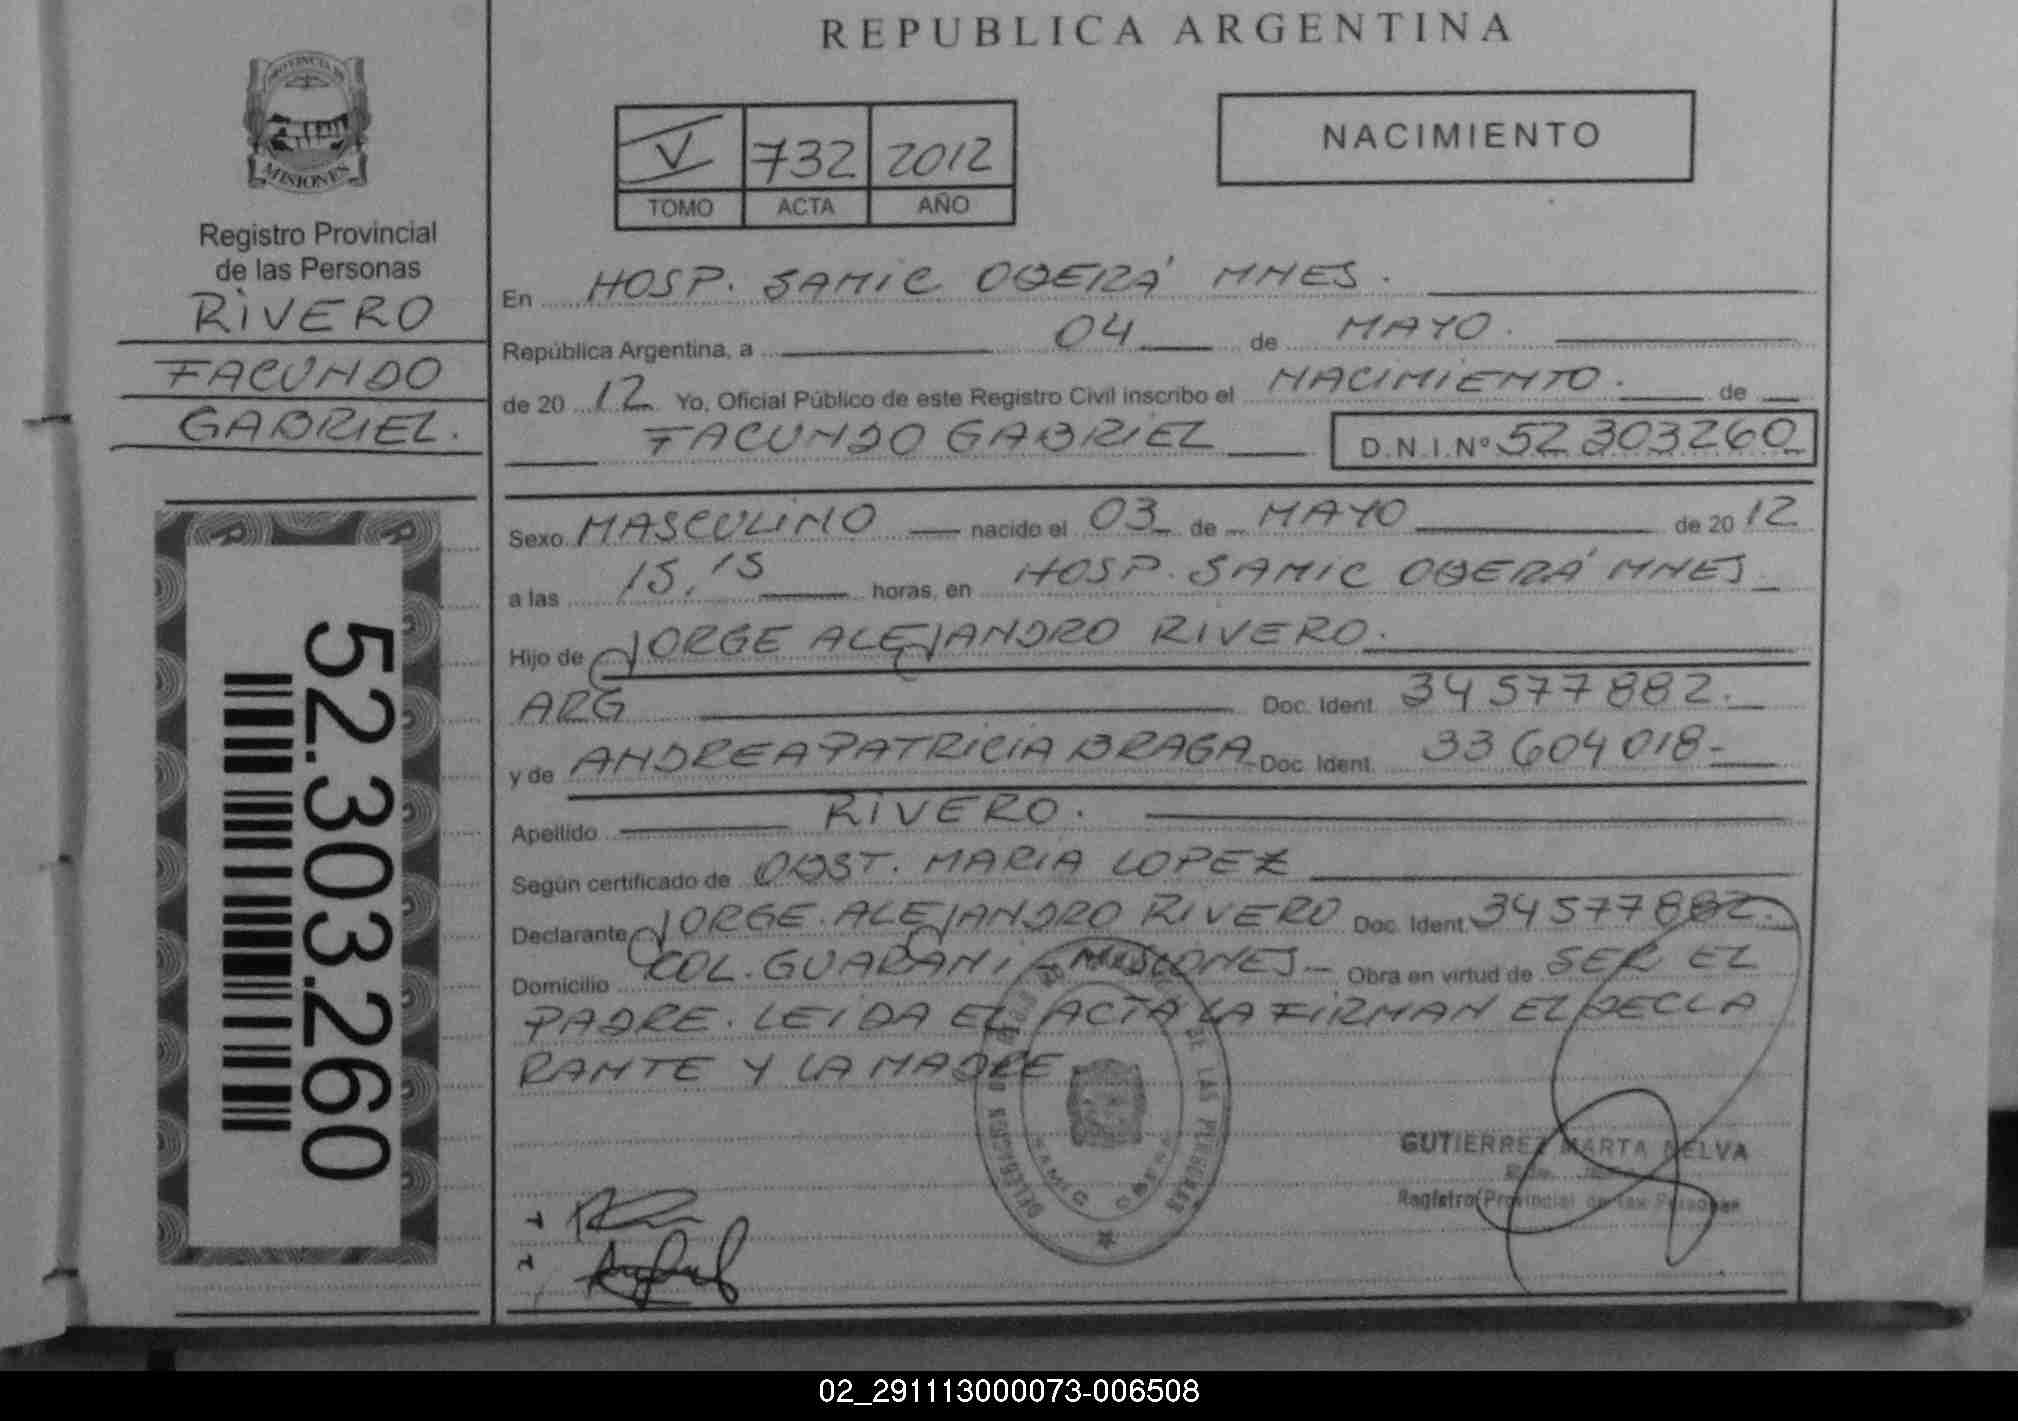 REPUBLICA ARGENTINA
PROVINCIA DE
MISIONES
Registro Provincial
de las Personas
RIVERO
FACUNDO
GABRIEL.
52.303.260
V 732 2012
TOMO ACTA AÑO
NACIMIENTO
En HOSP. SAMIC OBERÁ MNES.
República Argentina, a 04 de MAYO.
de 20 12 Yo, Oficial Público de este Registro Civil inscribo el NACIMIENTO. de
FACUNDO GABRIEL D.N.I.Nº 52.303.260
Sexo MASCULINO nacido el 03 de MAYO de 20 12
a las 15.15 horas, en HOSP. SAMIC OBERÁ MNES
Hijo de JORGE ALEJANDRO RIVERO.
ARG Doc. Ident. 34577882.
y de ANDREA PATRICIA BRAGA Doc. Ident. 33604018-
Apellido RIVERO.
Según certificado de OBST. MARIA LOPEZ
Declarante JORGE ALEJANDRO RIVERO Doc. Ident. 34577882.
Domicilio COL. GUARANI, MISIONES- Obra en virtud de SER EL
PADRE. LEIDA EL ACTA LA FIRMAN EL DECLA
RANTE Y LA MADRE
DE LAS PERSONAS
SAMIC OBERA
GUTIERREZ MARTA NELVA
Registro Provincial de las Personas
02_291113000073-006508